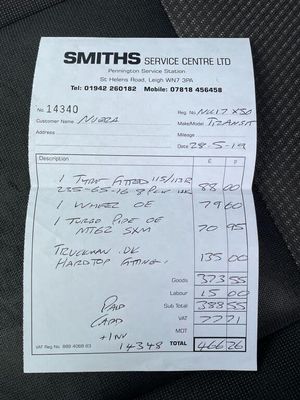 SMITHS SERVICE CENTRE LTD
Pennington Service Station
St Helens Road, Leigh WN7 3PA
Tel: 01942 260182 Mobile: 07818 456458
No. 14340
Reg. No. NU17 XSO
Customer Name
Make/Model TRANSIT
Address
Mileage
Date 28-5-19
Description £ p
1 TYRE FITTED 115/113R
235-65-16 8 PLY 88 00
1 WHEEL OE 79 60
1 TURBO PIPE OE
MT62 SXM 70 95
TRUCKMAN
HARDTOP FITTING 135 00
Goods 373 55
Labour 15 00
Sub Total 388 55
VAT 77 71
MOT
PAID
CARD
+ INV
14348
VAT Reg No. 888 4068 83
TOTAL 466 26